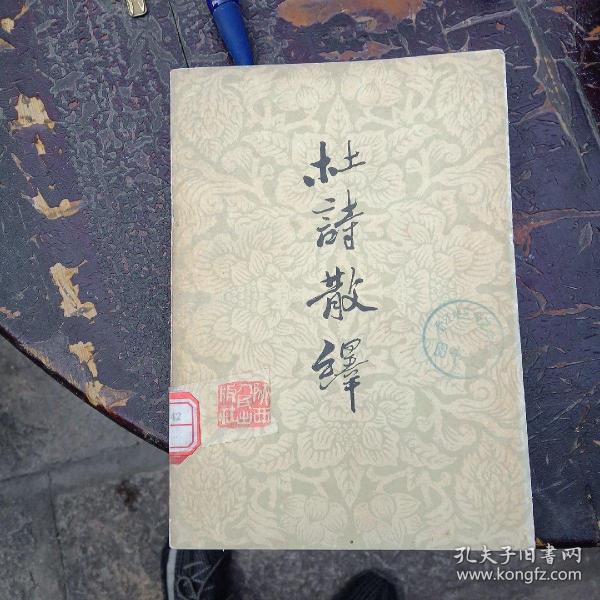 杜詩散繹
陕西
人民出
版社
42
孔夫子旧书网
www.kongfz.com